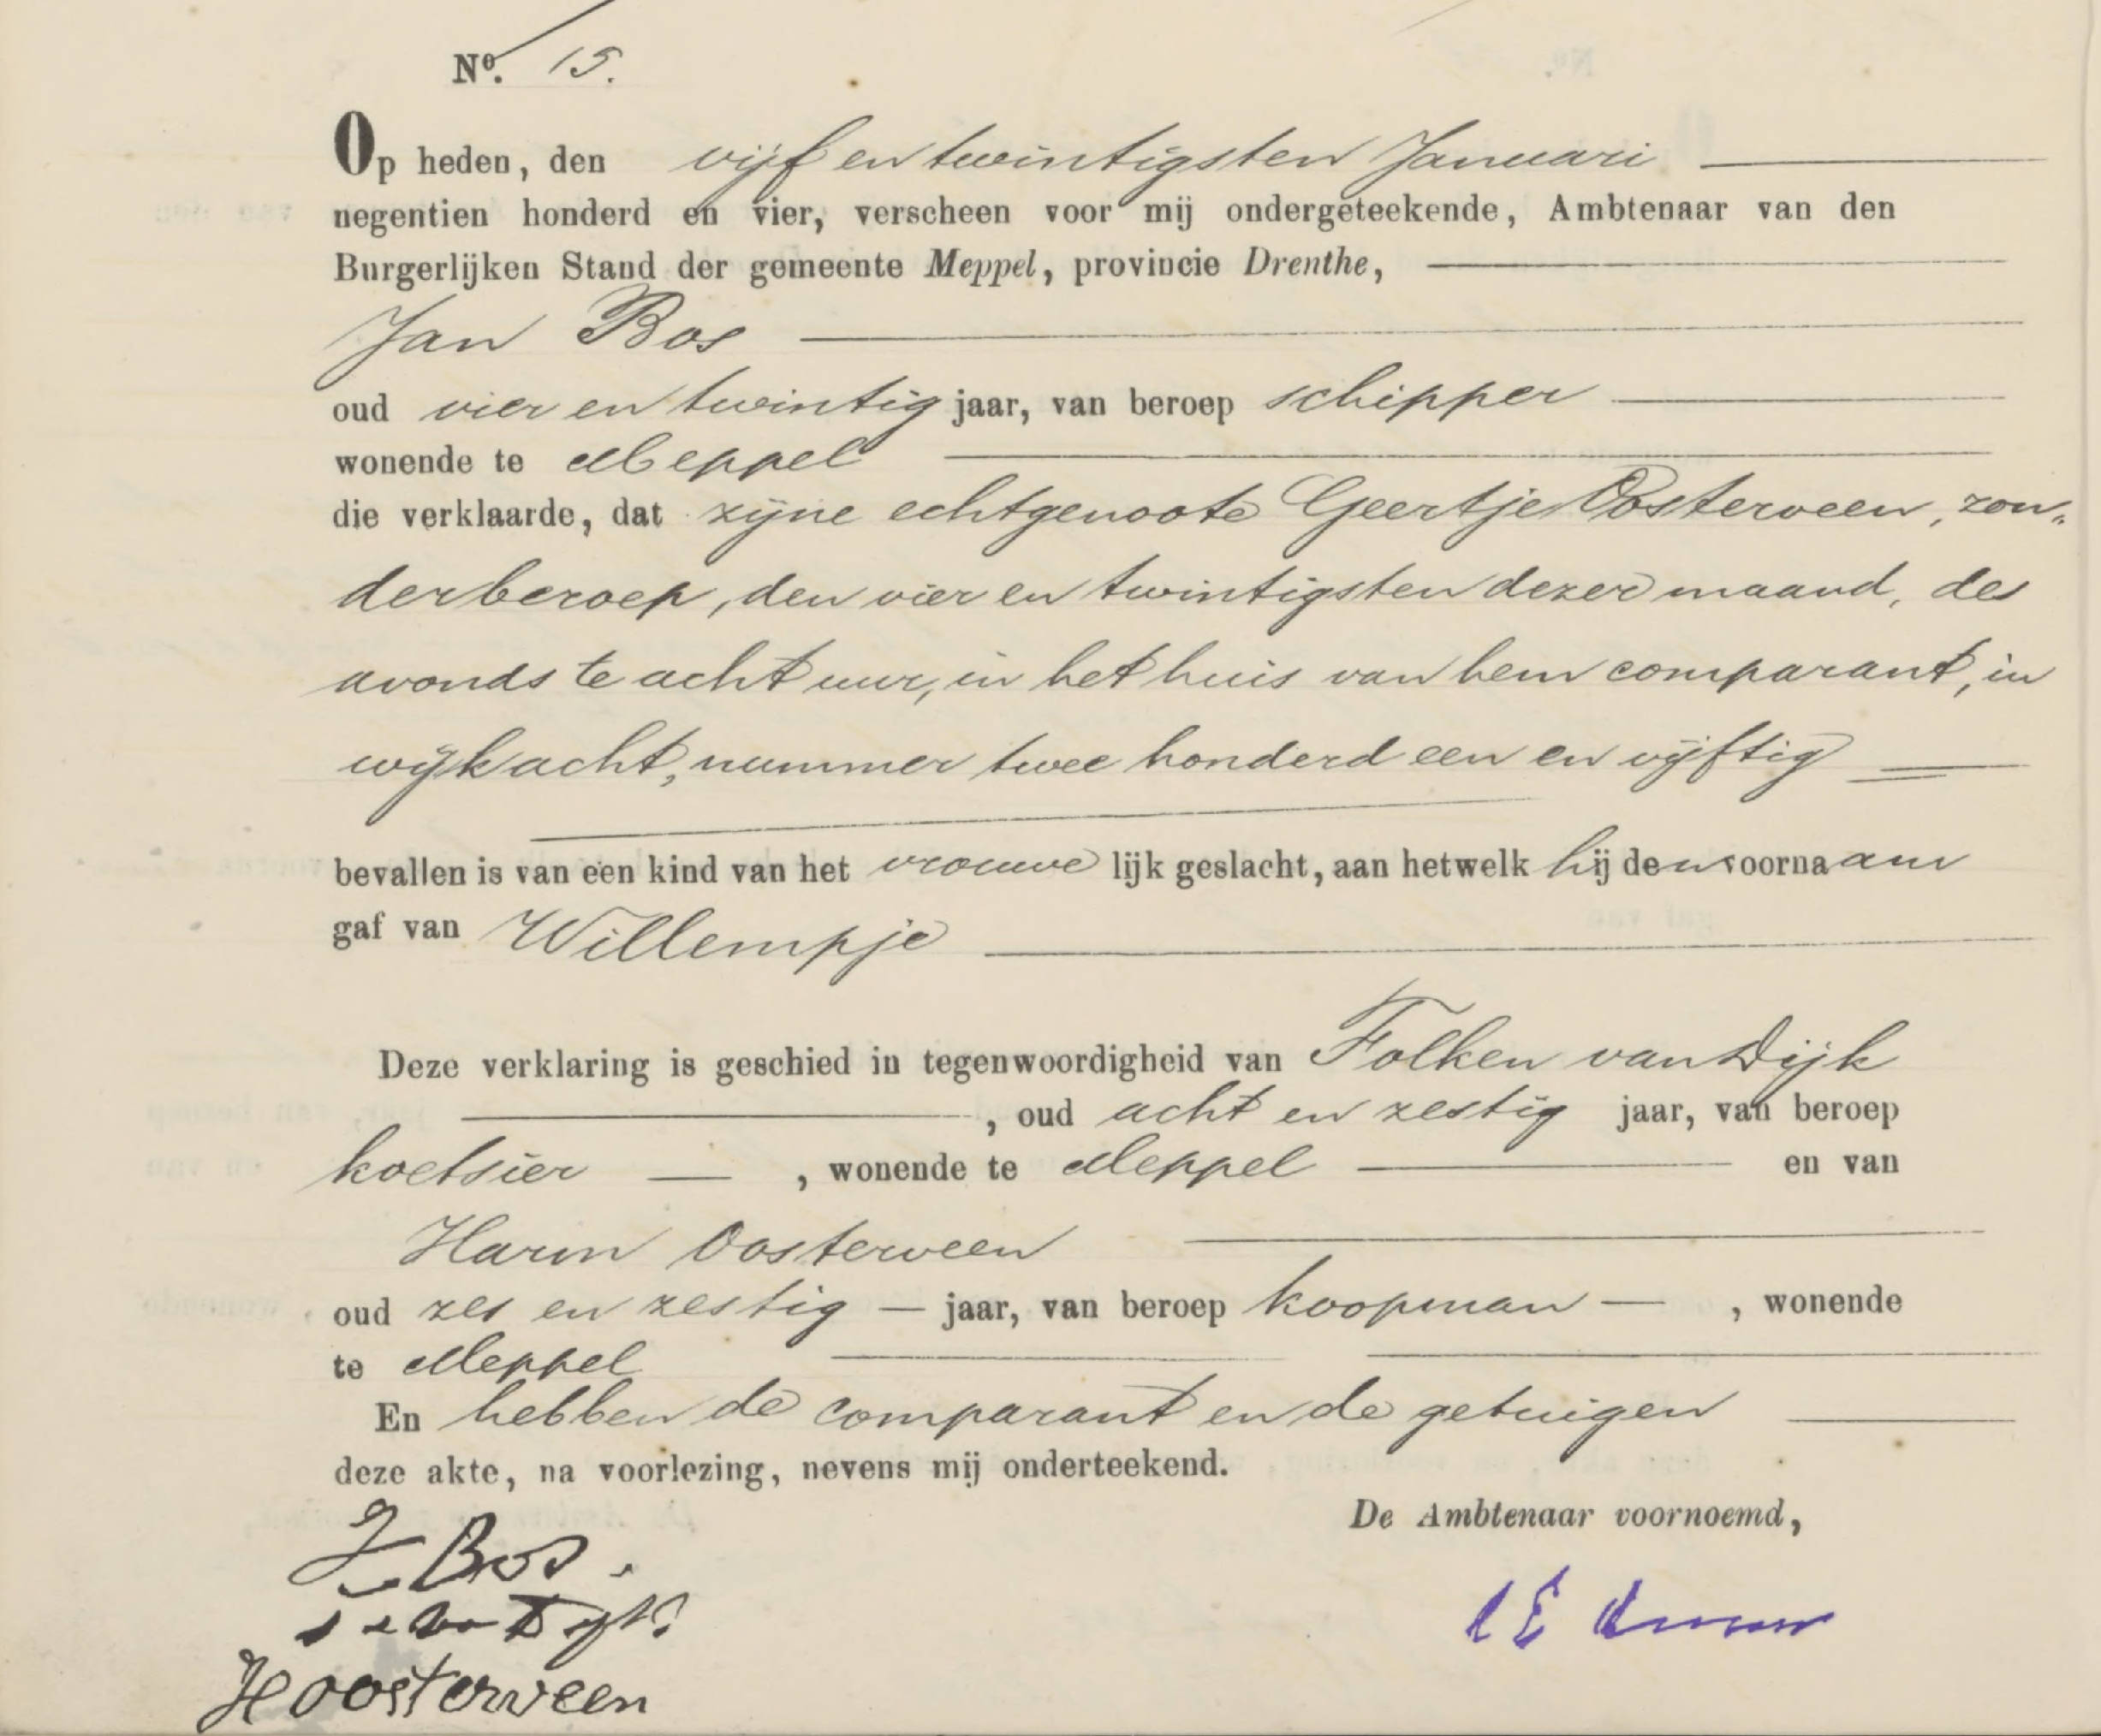 Nº. 15.
Op heden, den vijf en twintigsten Januari
negentien honderd en vier, verscheen voor mij ondergeteekende, Ambtenaar van den
Burgerlijken Stand der gemeente Meppel, provincie Drenthe,
Jan Bos
oud vier en twintig jaar, van beroep schipper
wonende te Meppel
die verklaarde, dat zijne echtgenoote Geertje Oosterveen, zon„
der beroep, den vier en twintigsten dezer maand, des
avonds te acht uur, in het huis van hem comparant, in
wijk acht, nummer twee honderd een en vijftig
bevallen is van een kind van het vrouwelijk geslacht, aan hetwelk hij den voornaam
gaf van Willempje
Deze verklaring is geschied in tegenwoordigheid van Folken van Dijk
, oud acht en zestig jaar, van beroep
koetsier , wonende te Meppel en van
Harm Oosterveen
oud zes en zestig jaar, van beroep koopman , wonende
te Meppel
En hebben de comparant en de getuigen
deze akte, na voorlezing, nevens mij onderteekend.
De Ambtenaar voornoemd,
J Bos.
H oosterveen